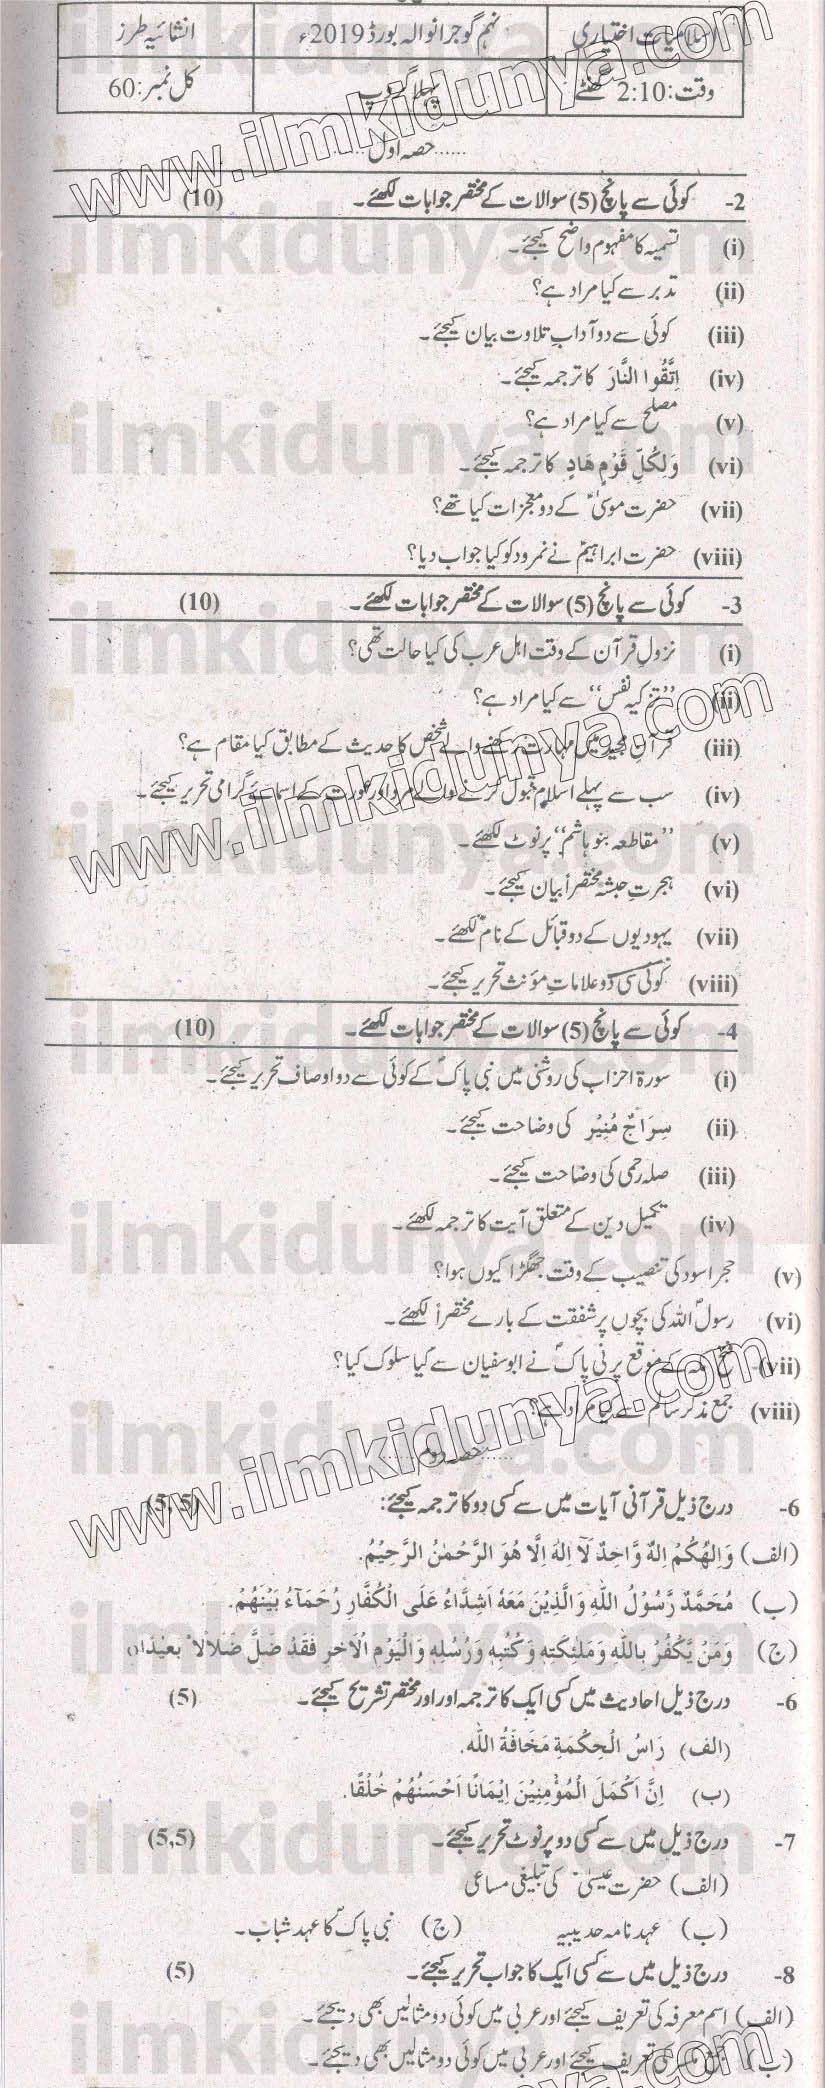 اسلامیات اختیاری نہم گوجرانوالہ بورڈ 2019ء انشائیہ طرز
وقت: 2:10 گھنٹے پہلا گروپ کل نمبر: 60
......حصہ اول......
2- کوئی سے پانچ (5) سوالات کے مختصر جوابات لکھئے۔ (10)
(i) تسمیہ کا مفہوم واضح کیجئے۔
(ii) تدبر سے کیا مراد ہے؟
(iii) کوئی سے دو آداب تلاوت بیان کیجئے۔
(iv) اِتَّقُوا النَّارَ کا ترجمہ کیجئے۔
(v) مصلح سے کیا مراد ہے؟
(vi) وَلِكُلِّ قَوْمٍ هَادٍ کا ترجمہ کیجئے۔
(vii) حضرت موسیٰؑ کے دو معجزات کیا تھے؟
(viii) حضرت ابراہیمؑ نے نمرود کو کیا جواب دیا؟
3- کوئی سے پانچ (5) سوالات کے مختصر جوابات لکھئے۔ (10)
(i) نزولِ قرآن کے وقت اہل عرب کی کیا حالت تھی؟
(ii) ”تزکیہ نفس“ سے کیا مراد ہے؟
(iii) قرآن مجید میں مہارت رکھنے والے شخص کا حدیث کے مطابق کیا مقام ہے؟
(iv) سب سے پہلے اسلام قبول کرنے والے مرد اور عورت کے اسمائے گرامی تحریر کیجئے۔
(v) ”مقاطعہ بنو ہاشم“ پر نوٹ لکھئے۔
(vi) ہجرتِ حبشہ مختصراً بیان کیجئے۔
(vii) یہودیوں کے دو قبائل کے نام لکھئے۔
(viii) کوئی سی دو علاماتِ مؤنث تحریر کیجئے۔
4- کوئی سے پانچ (5) سوالات کے مختصر جوابات لکھئے۔ (10)
(i) سورۃ احزاب کی روشنی میں نبی پاکؐ کے کوئی سے دو اوصاف تحریر کیجئے۔
(ii) سِرَاجٌ مُنِیْر کی وضاحت کیجئے۔
(iii) صلہ رحمی کی وضاحت کیجئے۔
(iv) تکمیل دین کے متعلق آیت کا ترجمہ لکھئے۔
(v) حجر اسود کی تنصیب کے وقت جھگڑا کیوں ہوا؟
(vi) رسول اللہؐ کی بچوں پر شفقت کے بارے مختصراً لکھئے۔
(vii) فتح مکہ کے موقع پر نبی پاکؐ نے ابوسفیان سے کیا سلوک کیا؟
(viii) جمع مذکر سالم سے کیا مراد ہے؟
......حصہ دوم......
6- درج ذیل قرآنی آیات میں سے کسی دو کا ترجمہ کیجئے: (5,5)
(الف) وَاِلٰهُكُمْ اِلٰهٌ وَّاحِدٌ لَآ اِلٰهَ اِلَّا هُوَ الرَّحْمٰنُ الرَّحِيْمُ.
(ب) مُحَمَّدٌ رَّسُوْلُ اللّٰهِ وَالَّذِيْنَ مَعَهٗ اَشِدَّاءُ عَلَى الْكُفَّارِ رُحَمَآءُ بَيْنَهُمْ.
(ج) وَمَنْ يَّكْفُرْ بِاللّٰهِ وَمَلٰئِكَتِهٖ وَكُتُبِهٖ وَرُسُلِهٖ وَالْيَوْمِ الْاٰخِرِ فَقَدْ ضَلَّ ضَلٰلًا بَعِيْدًا
6- درج ذیل احادیث میں کسی ایک کا ترجمہ اور اور مختصر تشریح کیجئے۔ (5)
(الف) رَاسُ الْحِكْمَةِ مَخَافَةُ اللّٰه.
(ب) اِنَّ اَكْمَلَ الْمُؤْمِنِيْنَ اِيْمَانًا اَحْسَنُهُمْ خُلُقًا.
7- درج ذیل میں سے کسی دو پر نوٹ تحریر کیجئے۔ (5,5)
(الف) حضرت عیسیٰؑ کی تبلیغی مساعی
(ب) عہد نامہ حدیبیہ (ج) نبی پاکؐ کا عہد شباب۔
8- درج ذیل میں سے کسی ایک کا جواب تحریر کیجئے۔ (5)
(الف) اسم معرفہ کی تعریف کیجئے اور عربی میں کوئی دو مثالیں بھی دیجئے۔
(ب) کی تعریف کیجئے اور عربی میں کوئی دو مثالیں بھی دیجئے۔
www.ilmkidunya.com
ilmkidunya.com